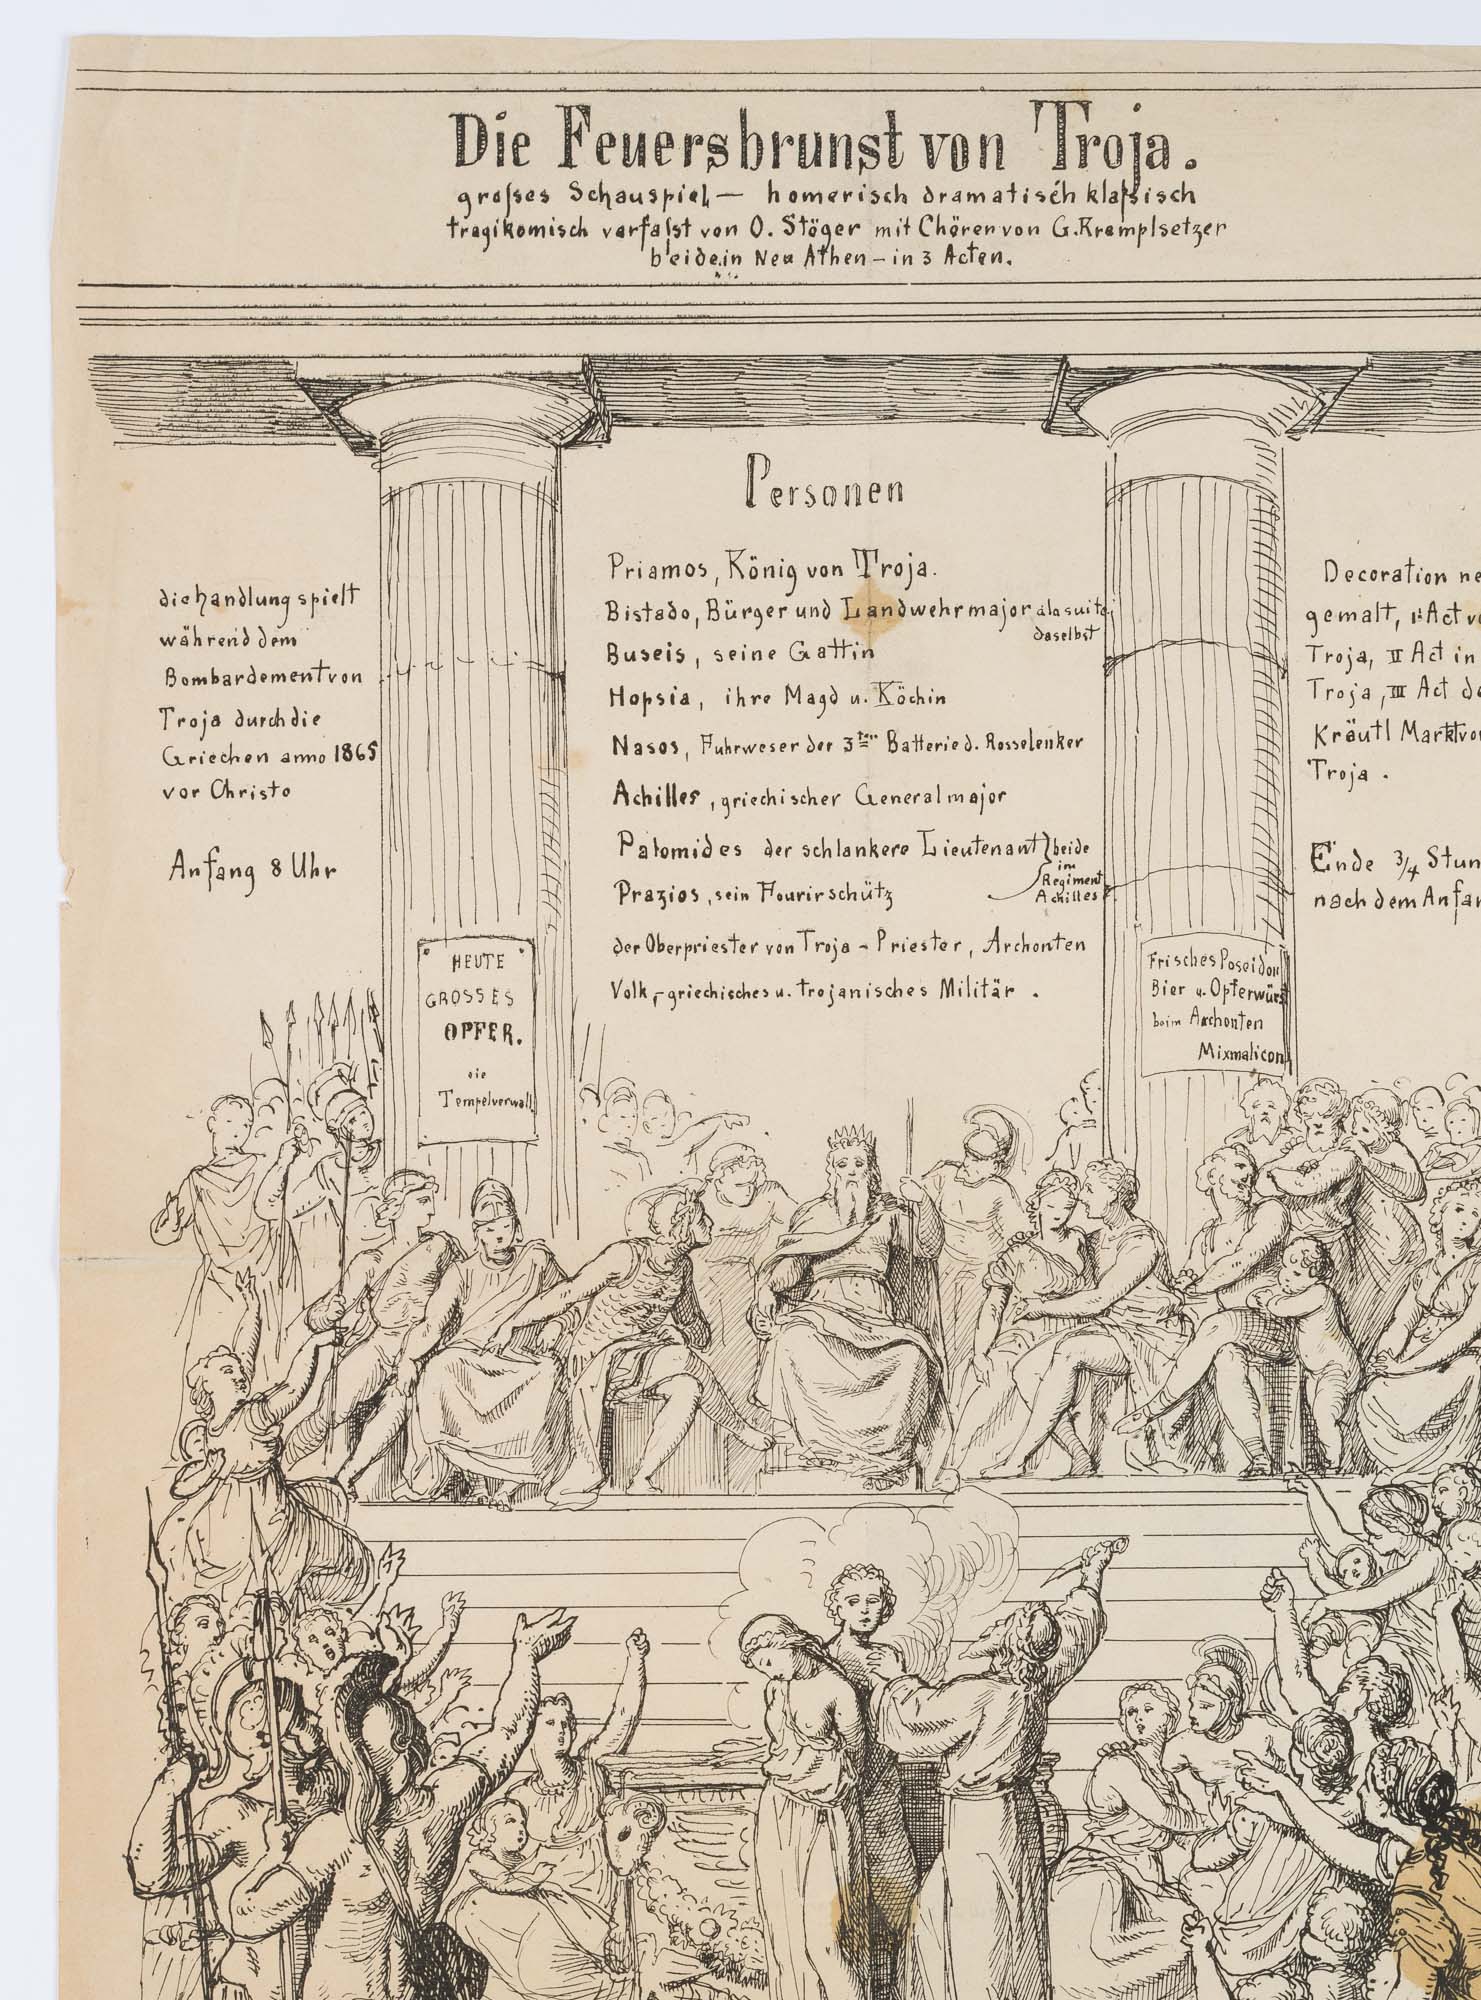 Die Feuersbrunst von Troja.
großes Schauspiel — homerisch dramatisch klaßisch
tragikomisch verfaßt von O. Stöger mit Chören von G. Krempelsetzer
beide in Neu Athen – in 3 Acten.
die handlung spielt
während dem
Bombardement von
Troja durch die
Griechen anno 1865
vor Christo
Anfang 8 Uhr
Personen
Priamos, König von Troja.
Bistado, Bürger und Landwehrmajor á la suite
daselbst
Buseis, seine Gattin
Hopsia, ihre Magd u. Köchin
Nasos, Fuhrweser der 3ten Batterie d. Rosselenker
Achilles, griechischer Generalmajor
Patomides der schlankere Lieutenant } beide
im
Regiment
Achilles
Prazios, sein Fourirschütz
der Oberpriester von Troja – Priester, Archonten
Volk, – griechisches u. trojanisches Militär.
Decoration
gemalt, 1t Act
Troja, II Act in
Troja, III Act
Kräutl Markt
Troja.
Ende 3/4
nach dem
HEUTE
GROSSES
OPFER.
die
Tempelverwalt
Frisches Poseidon
Bier u. Opferwürst
beim Archonten
Mixmalicon